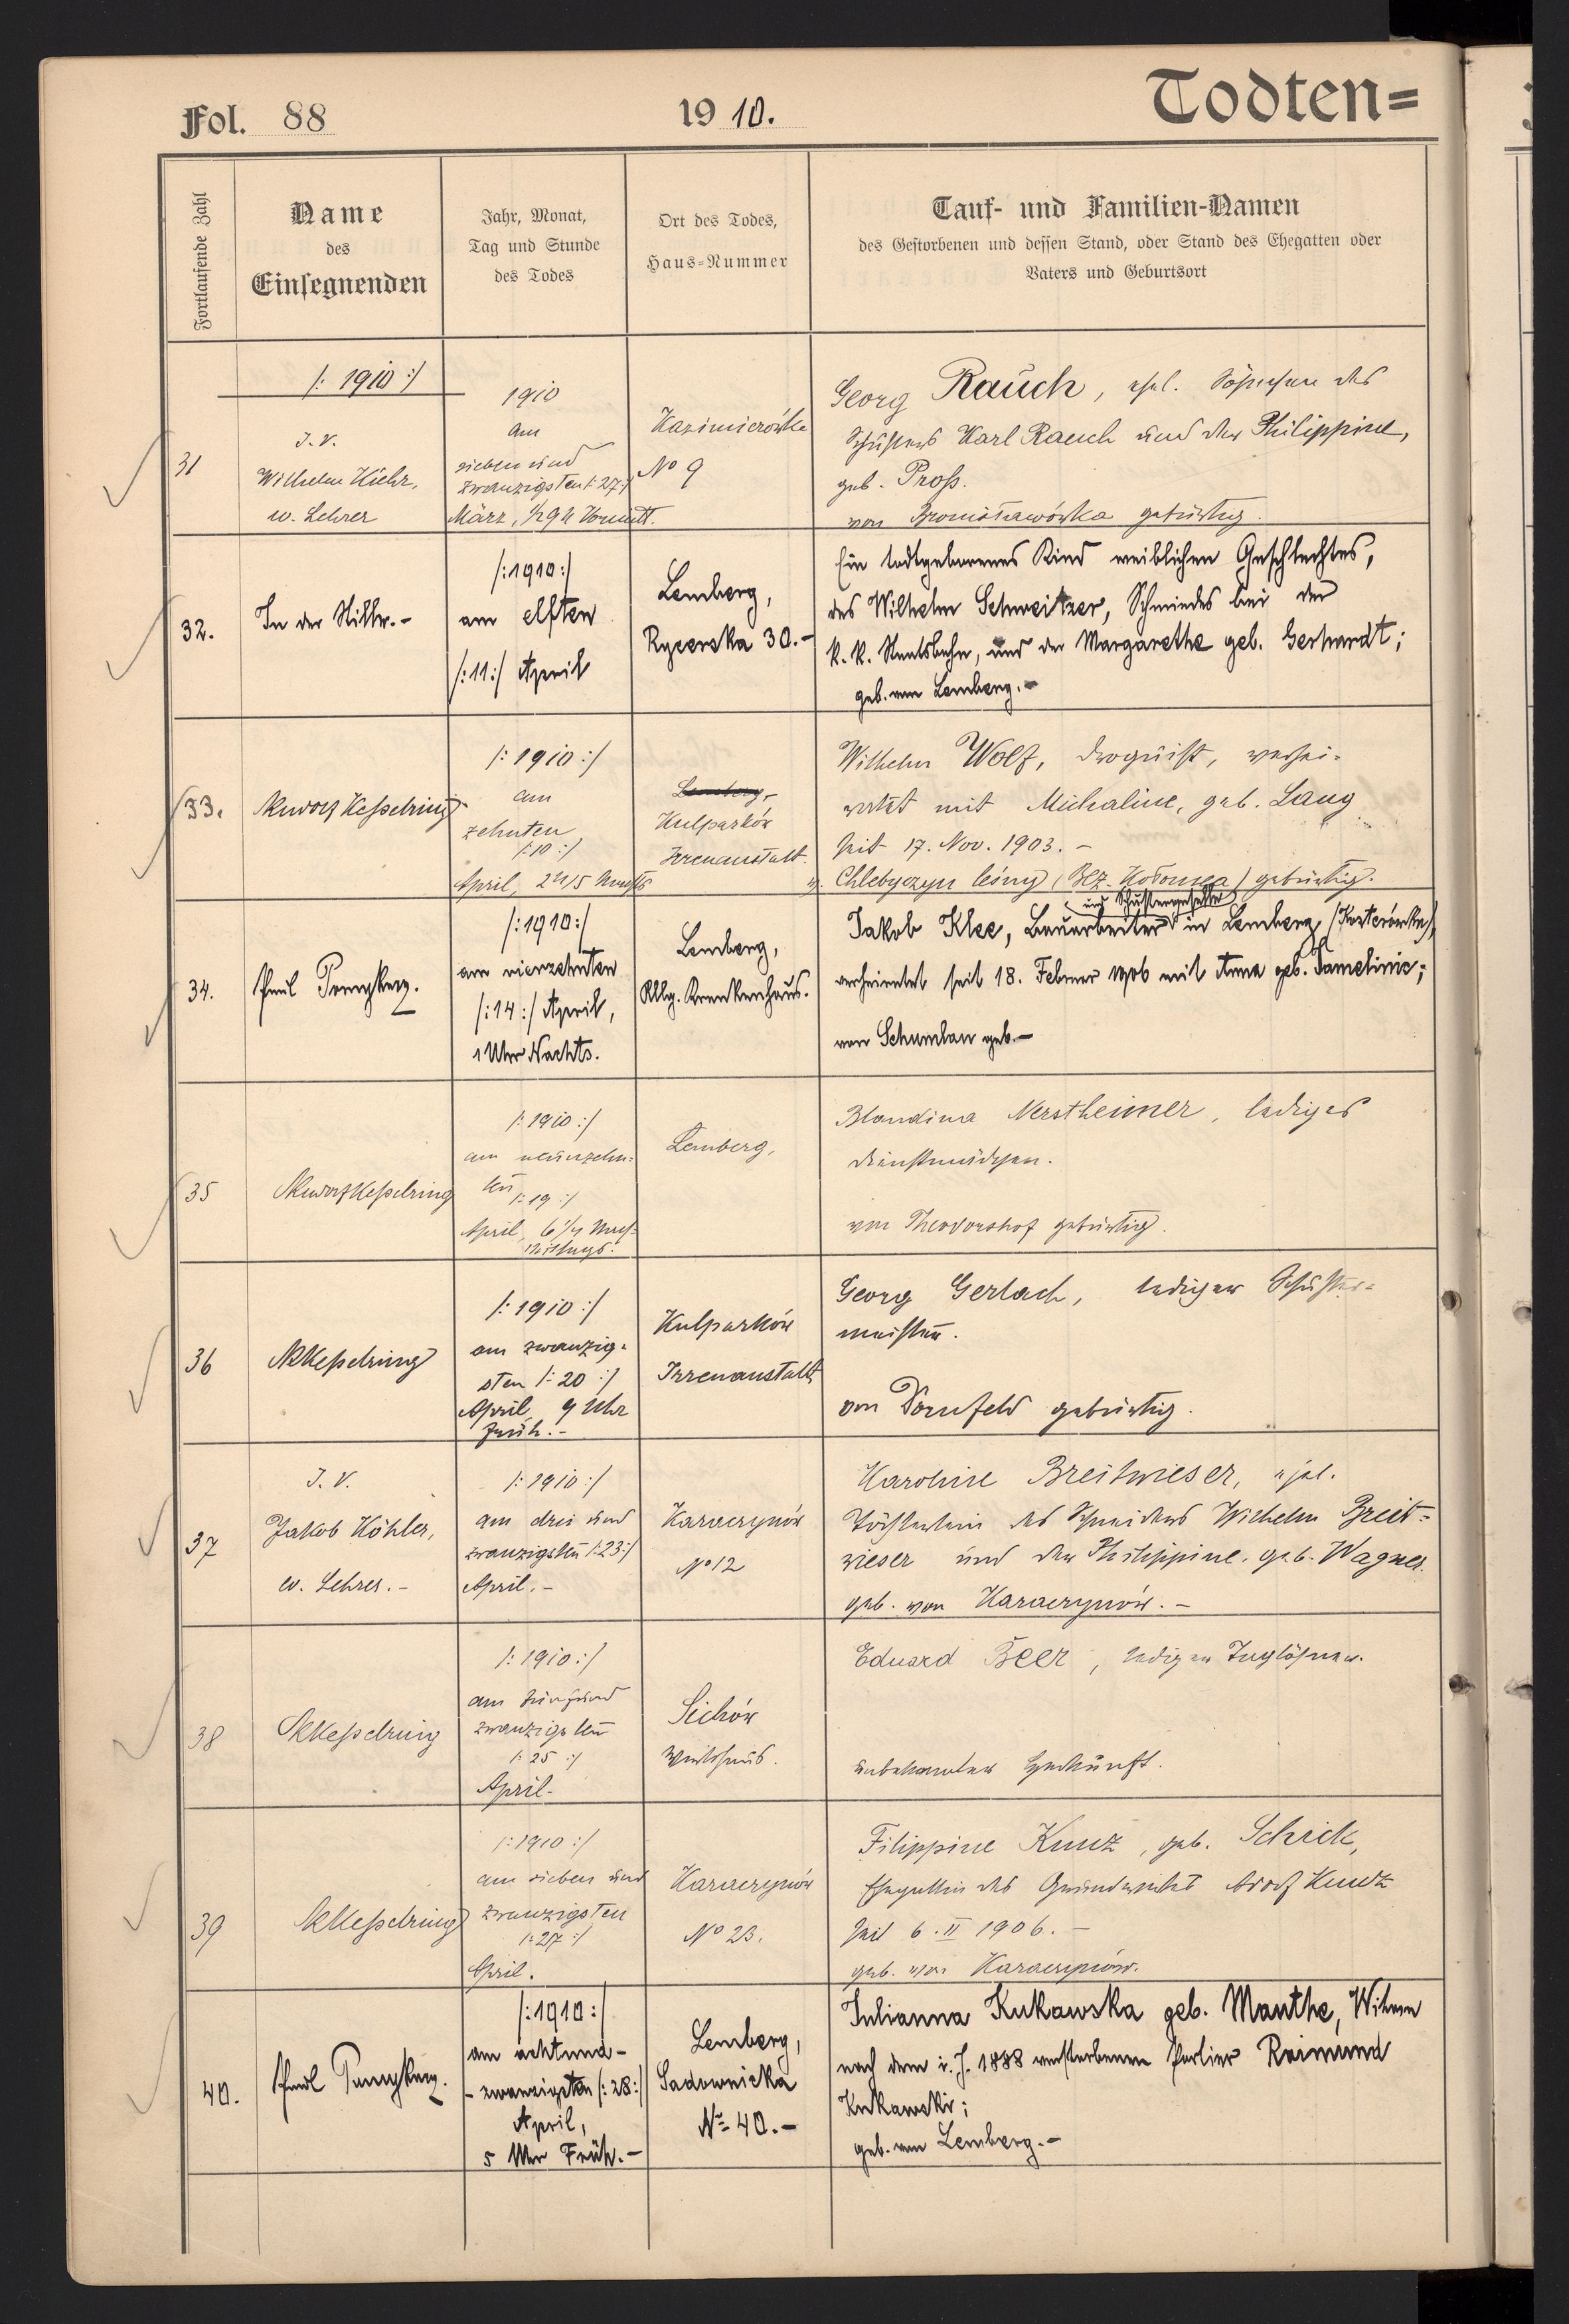 Fol. 88
1910.
Todten=
Fortlaufende Zahl
Name
des
Einsegnenden
Jahr, Monat,
Tag und Stunde
des Todes
Ort des Todes,
Haus-Nummer
Tauf- und Familien-Namen
des Gestorbenen und dessen Stand, oder Stand des Ehegatten oder
Vaters und Geburtsort
/: 1910 :/
31
I. V.
Wilhelm
w. Lehrer
1910
am
sieben und
zwanzigsten /:27:/
März, 1/2 9 h Vormitt.
Kazimierówka
No 9
Georg Rauch, ehel. Söhnchen des
Karl Rauch und der Philippine,
geb. Proß.
von Bronisławówka gebürtig.
32.
In der Stille.-
/:1910:/
am elften
/:11:/ April
Lemberg,
Rycerska 30.-
Ein todtgeborenes Kind weiblichen Geschlechtes,
des Wilhelm Schweitzer, Schmiedes bei der
k. k. Staatsbahn, und der Margarethe geb. Gerhardt;
geb. von Lemberg.-
33.
Kesselring
/: 1910 :/
am
zehnten
/:10:/
April,
Lemberg,
Kulparków
Irrenanstalt.
Wilhelm Wolf, Droguist, verhei-
ratet mit Michaline, geb. Lang
seit 17. Nov. 1903.-
v. Chlebyczyn leśny (Bez. Kołomea) gebürtig.
34.
Emil
/:1910:/
am vierzehnten
/:14:/ April,
1 Uhr Nachts.
Lemberg,
Allg. Krankenhaus.
und Schustergeselle
Jakob Klee, Bauarbeiter in Lemberg
verheiratet seit 18. Februar 1906 mit Anna geb.
von Schumlau geb.-
35
Kesselring
/: 1910 :/
am neunzehn-
ten /:19:/
April, 6 1/4 Nach-
mittags.
Lemberg,
Blandina Nerstheimer, lediges
Dienstmädchen.
von Theodorshof gebürtig.
36
Kesselring
/: 1910 :/
am zwanzig-
sten /: 20 :/
April 9 Uhr
Früh.-
Kulparków
Irrenanstalt
Georg Gerlach, lediger Schuster-
meister.
von Dornfeld gebürtig.
37
I. V.
Jakob Köhler,
w. Lehrer.-
/: 1910 :/
am drei und
zwanzigsten /:23:/
April.-
Karaczynów
No 12
Karoline Breitwieser, ehel.
Töchterlein des Schneiders Wilhelm Breit-
wieser und der Philippine, geb. Wagner.
geb. von Karaczynów.-
38
Kesselring
/: 1910 :/
am fünfund
zwanzigsten
/: 25 :/
April-
Sichów
Wirtshaus.
Eduard Beer, lediger Taglöhner.
unbekannter Herkunft.
39
Kesselring
/: 1910 :/
am sieben und
zwanzigsten
/: 27 :/
April.
Karaczynów
No 23.
Filippine Kunz, geb. Schick,
Ehegattin des Grundwirtes Adolf Kuntz
seit 6. II 1906.-
geb. von Karaczynów.
40.
Emil
/:1910:/
am achtund-
-zwanzigsten /:28:/
April,
5 Uhr Früh.-
Lemberg,
Sadownicka
No 40.-
Julianna Kukawska geb. Manthe, Witwe
nach dem i. J. 1888 verstorbenen Polier Raimund
Kukawski;
geb. von Lemberg.-